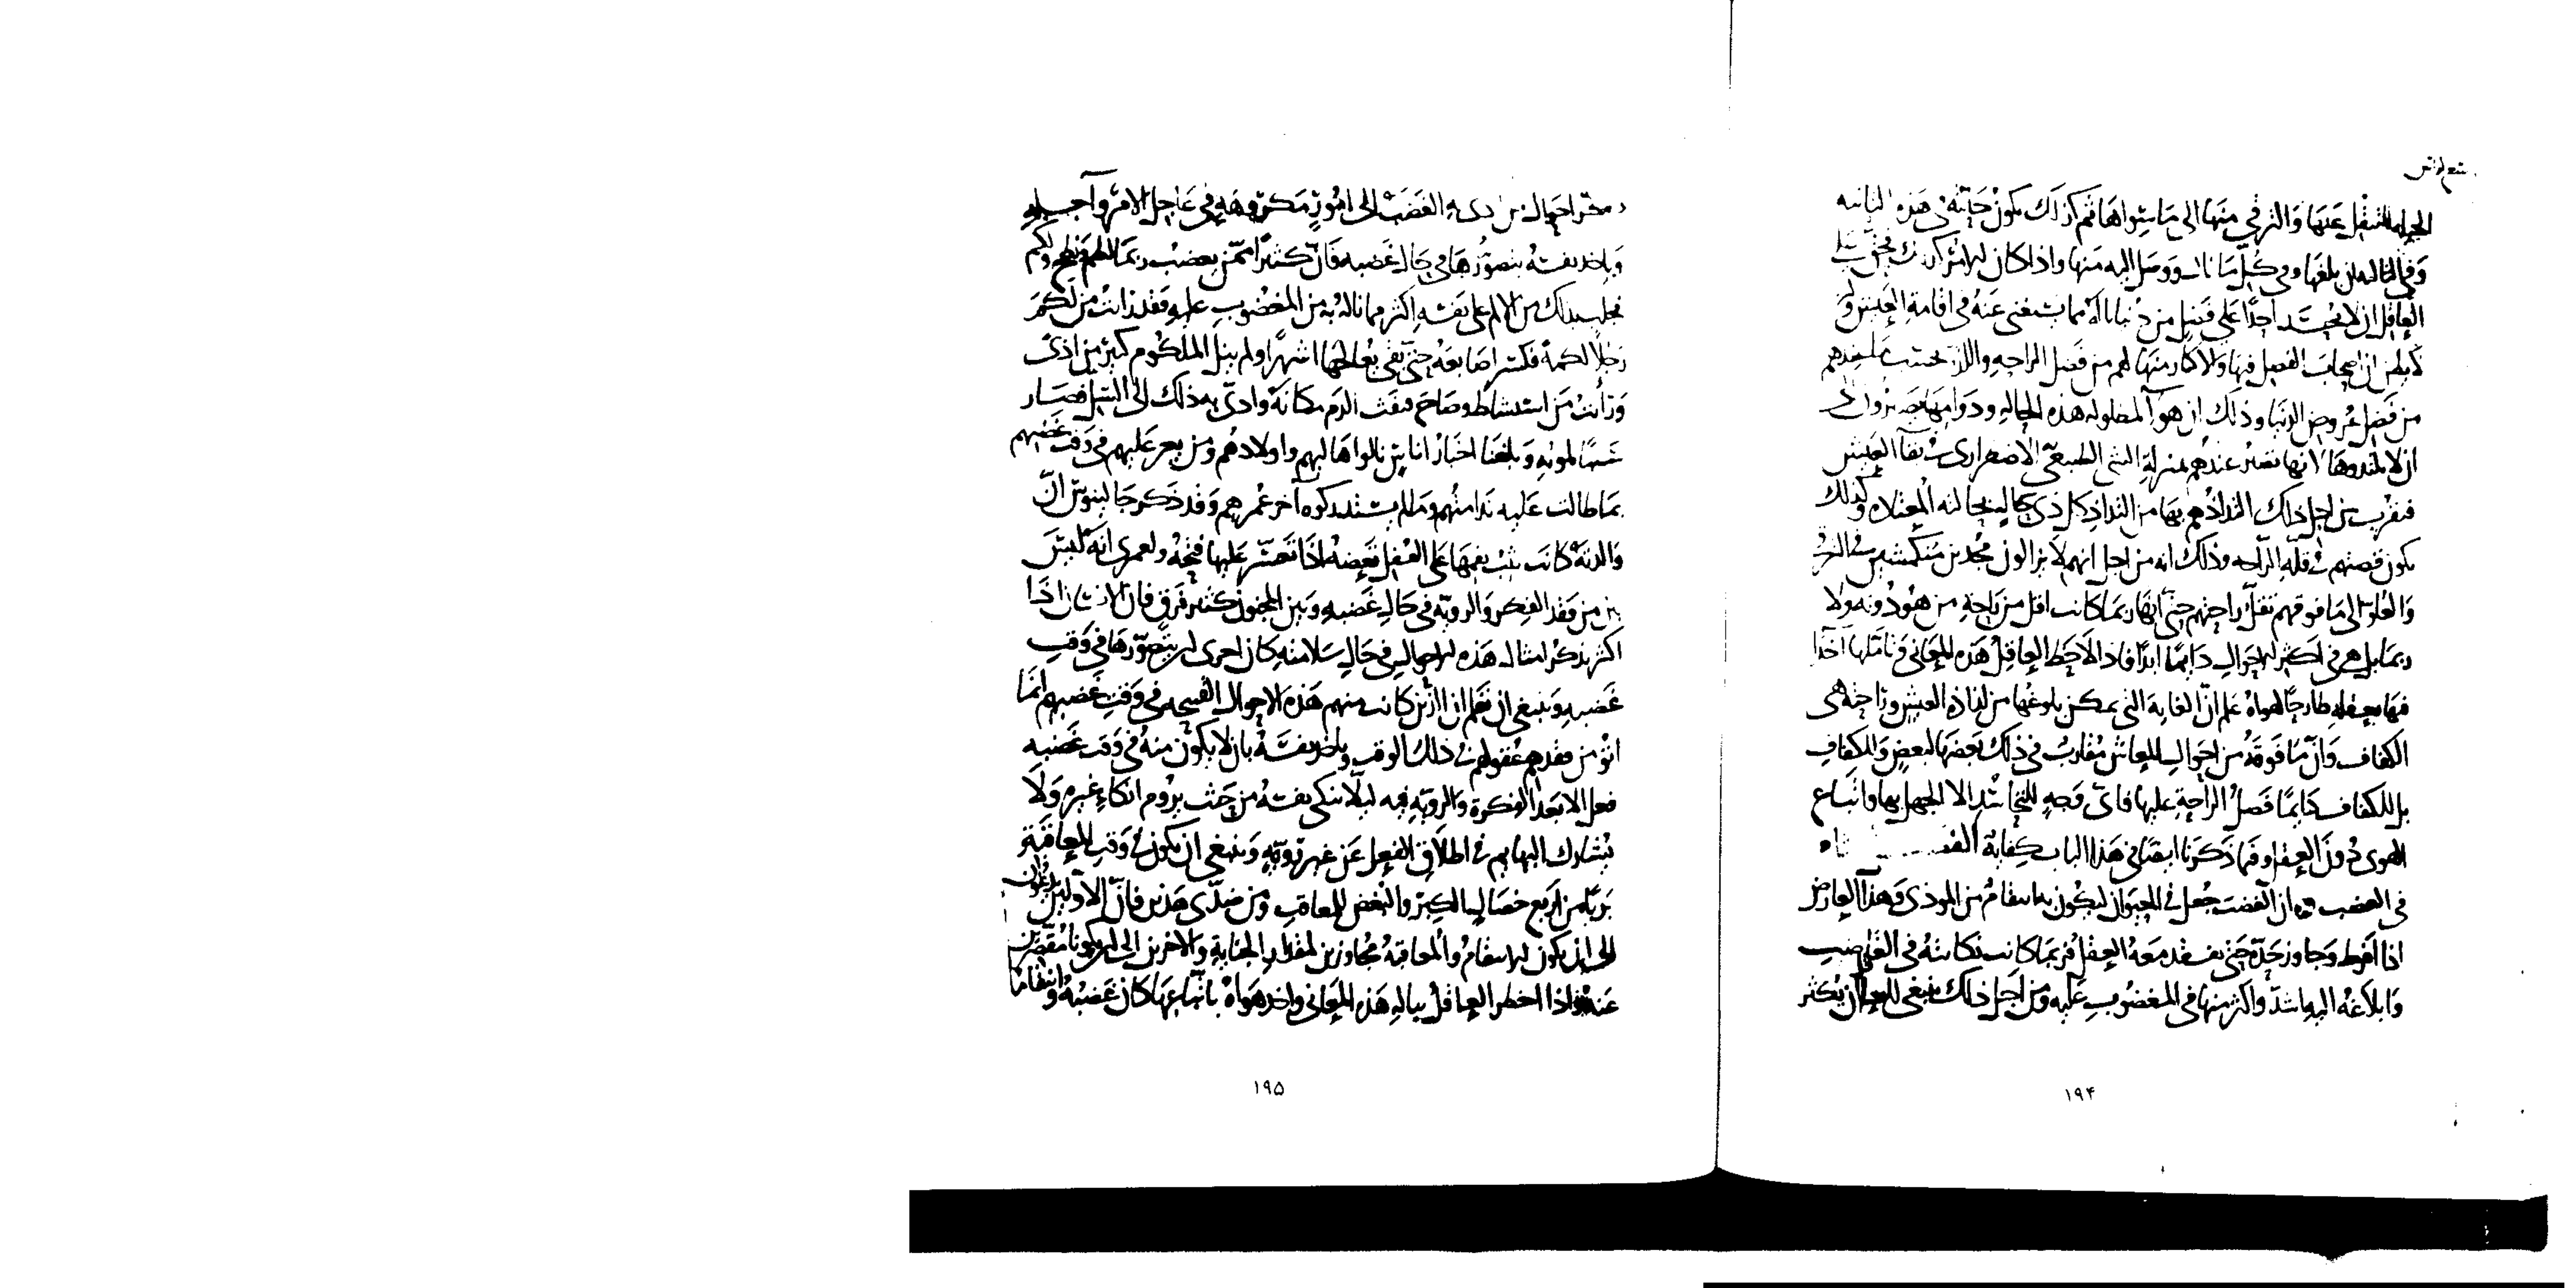 الحاله التنقل عنها والترقي منها الى ما سواها ثم كذلك تكون حالته في هذه الثانيه
وفي الثالثه ان بلغها وفي كل ما نال ووصل اليه منها واذا كان الامر كذلك فحق على
العاقل ان لا يحسد احدًا على فضل من دنيا ناله مما يستغنى عنه في اقامة العيش ولا
يظن ان اصحاب الفضل فيها والاكثار منها لهم من فضل الراحه واللذه بحسب ما عندهم
من فضل عروض الدنيا وذلك ان هؤلا لمطاوله هذه الحاله ودوامها يصيرون الى
ان لا يلتذوها لانها تصير عندهم بمنزلة الشي الطبيعي الاضطراري في بقا العيش
فيقرب من اجل ذلك التذاذهم بها من التذاذ كل ذي حال بحالته المعتاده وكذلك
تكون قصتهم في قلة الراحه وذلك انه من اجل انهم لا يزالون مجدين منكمشين في الترقي
والعلو الى ما فوقهم تقل راحتهم حتى انها ربما كانت اقل من راحة من هو دونهم ولا
ربما بل هي في اكثر الاحوال دايمًا ابدًا فاذا لاحظ العاقل هذه المعاني وتاملها آخذا
فيها بعقله طارحًا لهواه علم ان الغاية التي يمكن بلوغها من لذاذة العيش وراحته هي
الكفاف وان ما فوقه من احوال المعاش مقارب في ذلك بعضها لبعض وللكفاف
بل للكفاف دايمًا فضل الراحة عليها فاى وجه للتحاسد الا الجهل بها واتباع
الهوى دون العقل وفيما ذكرنا ايضًا في هذا الباب كفاية الفصل
في الغضب ان الغضب جعل في الحيوان ليكون به انتقام من الموذي وهذا العارض
اذا افرط وجاوز حده حتى يفقد معه العقل فربما كانت نكايته في الغاضب
وابلاغه اليه اشد واكثر منها في المغضوب عليه ومن اجل ذلك ينبغي للعاقل ان يكثر
احوال من ادى به الغضب الى امور مكروهه في عاجل الامر وآجله
وياخذ نفسه بتصورها في حال غضبه فان كثيرًا ممن يغضب ربما لكم ولطم ونطح
فجلب بذلك من الالم على نفسه اكثر مما ناله به من المغضوب عليه ولقد رايت من لكم
رجلًا لكمة فكسر اصابعه حتى بقي يعالجها اشهرًا ولم ينل الملكوم كبير من اذى
ورأيت من استشاط وصاح فنفث الدم مكانه وادى به ذلك الى السل فصار
سببًا لموته وبلغنا اخبار اناس نالوا اهاليهم واولادهم ومن يعز عليهم في وقت غضبهم
بما طالت عليه ندامتهم وربما لم يستدركوه آخر عمرهم وقد ذكر جالينوس ان
والدته كانت تثب بفمها على القفل فتعضه اذا تعسر عليها فتحه ولعمري انه ليس
بين من فقد الفكر والروية في حال غضبه وبين المجنون كثير فرق فان الانسان اذا
اكثر تذكر امثال هذه الاحوال في حال سلامته كان احرى ان يتصورها في وقت
غضبه وينبغي ان نعلم ان الذين كانت منهم هذه الاحوال القبيحه في وقت غضبهم انما
اتوا من فقدهم عقولهم في ذلك الوقت وياخذ نفسه بان لا يكون منه في وقت غضبه
فعل الا بعد الفكرة والروية فيه ليلا ينكى نفسه من حيث يروم انكاء غيره ولا
يشارك البهايم في اطلاق الفعل عن غير روية وينبغي ان يكون في وقت المعاقبة
بريًا من اربع خصال الكبر والبغض للمعاقب ومن ضدي هذين فان الاولين يدعوان
الى ان يكون الانتقام والمعاقبة مجاوزين لمقدار الجناية والاخرين الى ان يكونا مقصرين
عنه واذا اخطر العاقل بباله هذه المعاني واخذ هواه باتباعها كان غضبه وانتقامه
۱۹۴
۱۹۵